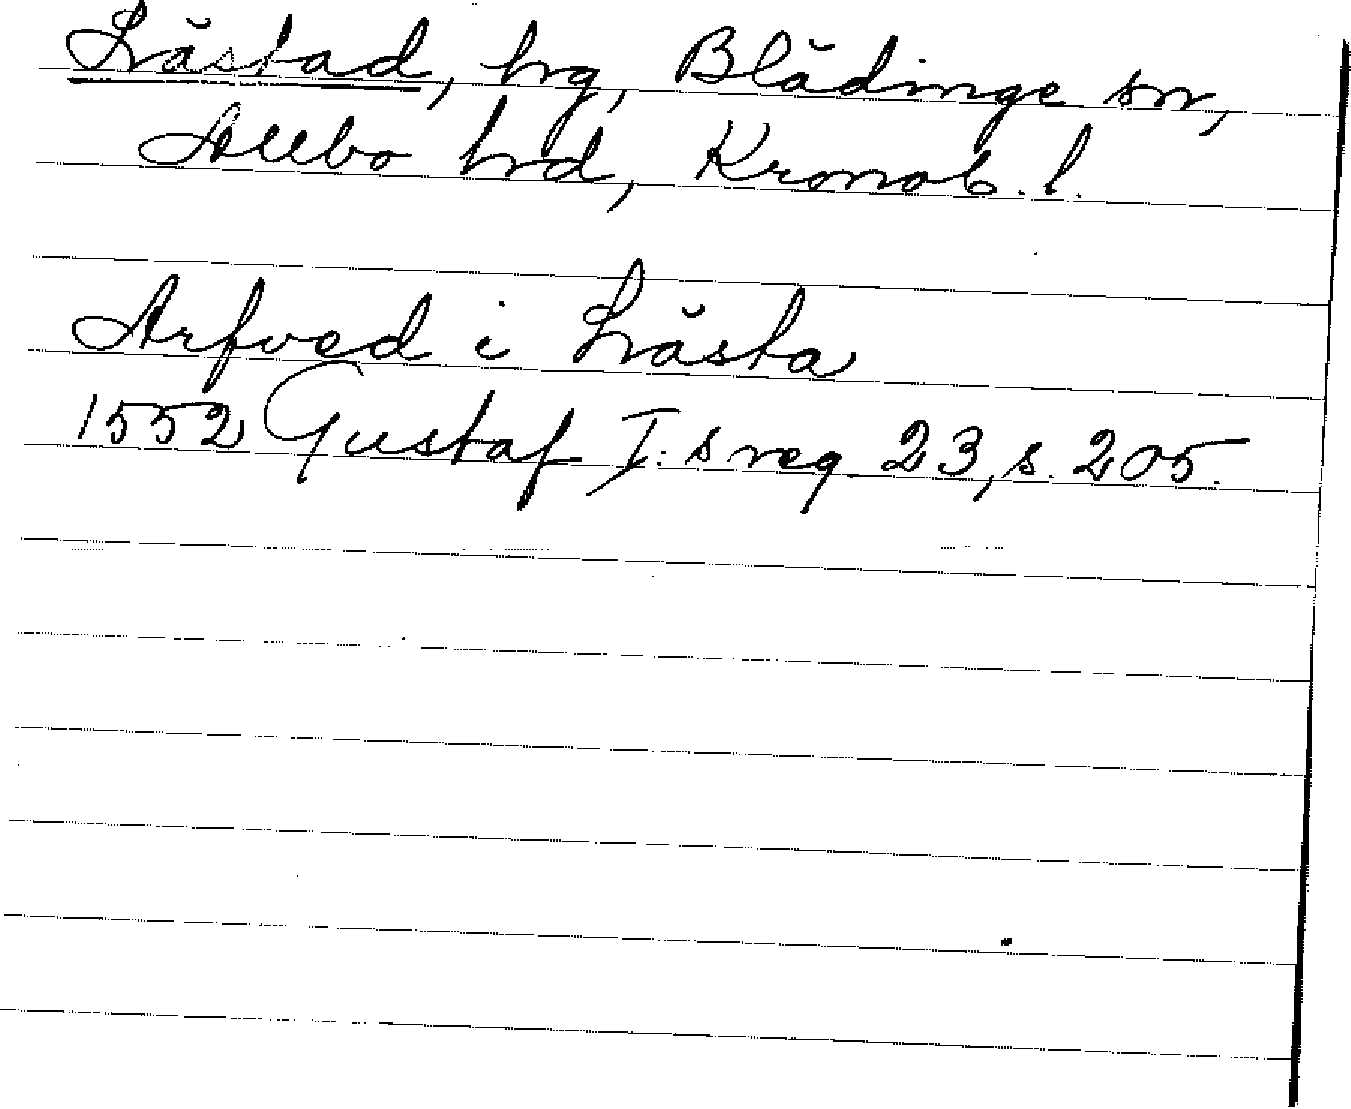 Lästad, hg, Blädinge sn,
Allbo hrd, Kronob. l.
Arfved i Lästa
1552 Gustaf I:s reg 23, s. 205.